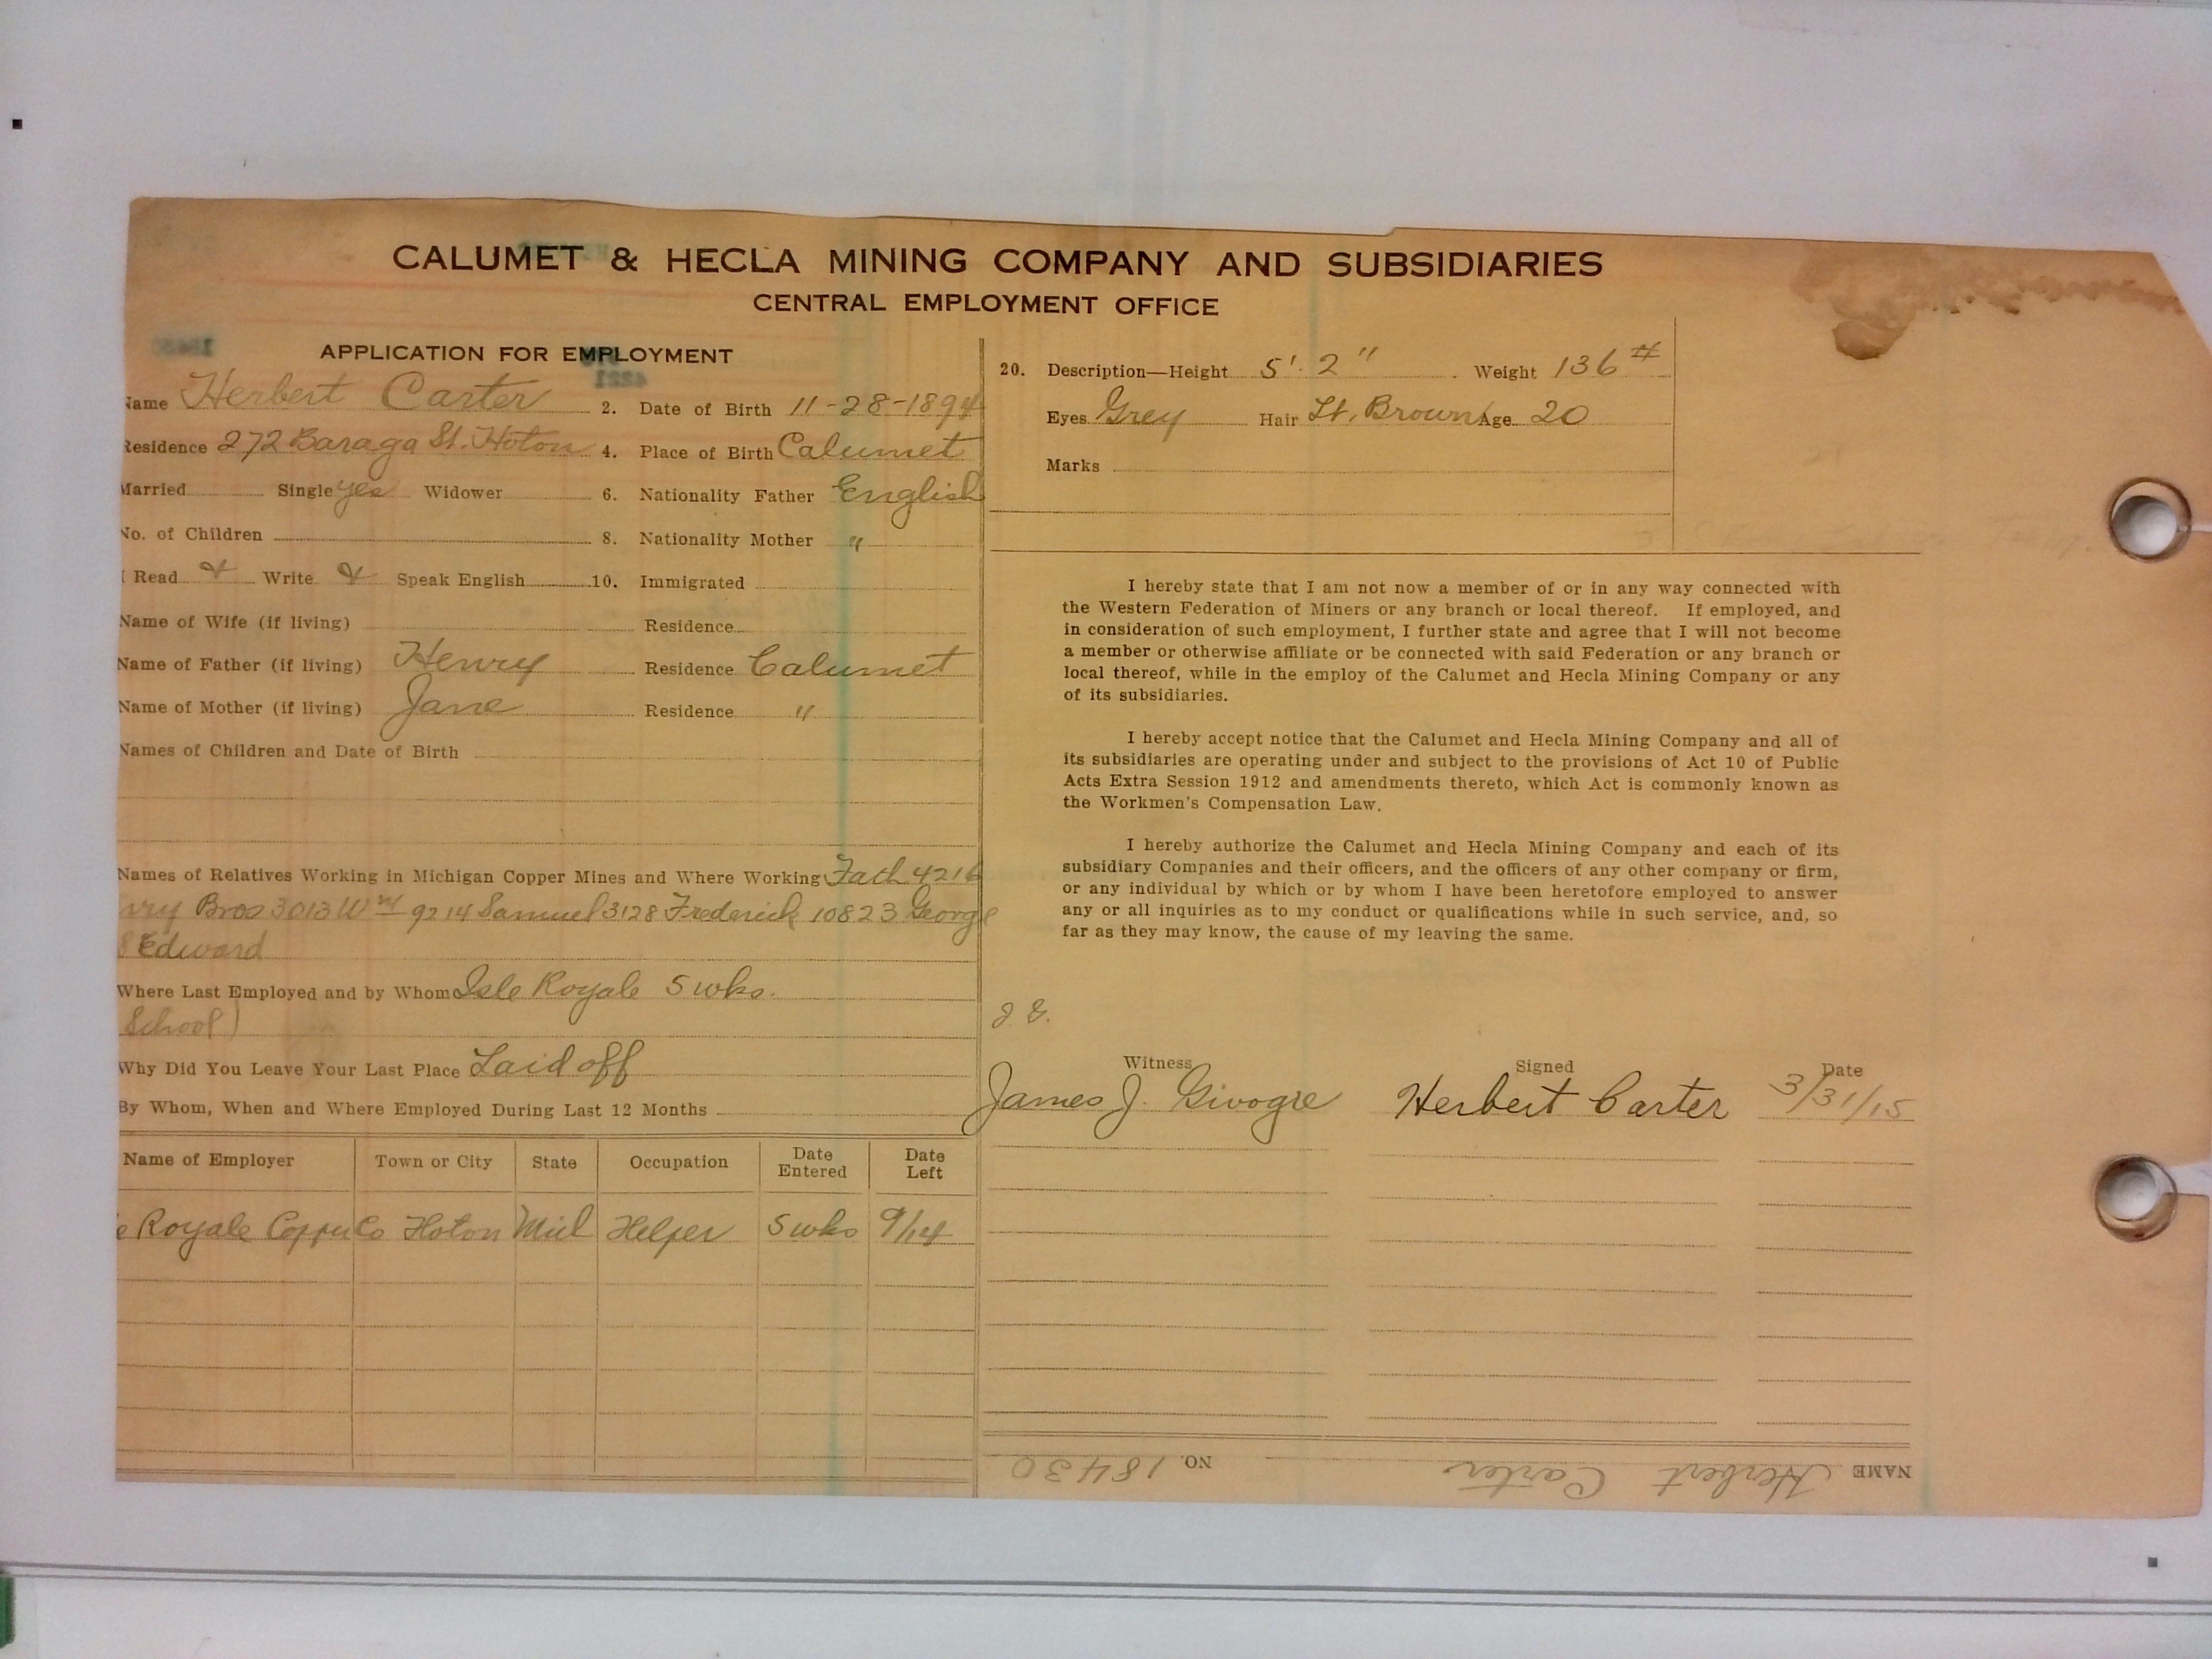 CALUMET & HECLA MINING COMPANY AND SUBSIDIARIES
CENTRAL EMPLOYMENT OFFICE
APPLICATION FOR EMPLOYMENT
Name Herbert Carter 2. Date of Birth 11-28-1894
Residence 272 Baraga St. Hoton 4. Place of Birth Calumet
Married Single yes Widower 6. Nationality Father English
No. of Children 8. Nationality Mother "
I Read Write Speak English 10. Immigrated
Name of Wife (if living) Residence
Name of Father (if living) Henry Residence Calumet
Name of Mother (if living) Jane Residence "
Names of Children and Date of Birth
Names of Relatives Working in Michigan Copper Mines and Where Working Fath 4216
nry Bros 3013 Wm 9214 Samuel 3128 Frederick 10823 George
Edward
Where Last Employed and by Whom Isle Royale 5 wks.
School)
Why Did You Leave Your Last Place Laid off
By Whom, When and Where Employed During Last 12 Months
Name of Employer Town or City State Occupation Date Entered Date Left
e Royale Copper Co Hoton Mich Helper 5 wks 9/14
20. Description—Height 5'. 2" Weight 136 #
Eyes Grey Hair Lt. Brown Age 20
Marks
I hereby state that I am not now a member of or in any way connected with
the Western Federation of Miners or any branch or local thereof. If employed, and
in consideration of such employment, I further state and agree that I will not become
a member or otherwise affiliate or be connected with said Federation or any branch or
local thereof, while in the employ of the Calumet and Hecla Mining Company or any
of its subsidiaries.
I hereby accept notice that the Calumet and Hecla Mining Company and all of
its subsidiaries are operating under and subject to the provisions of Act 10 of Public
Acts Extra Session 1912 and amendments thereto, which Act is commonly known as
the Workmen's Compensation Law.
I hereby authorize the Calumet and Hecla Mining Company and each of its
subsidiary Companies and their officers, and the officers of any other company or firm,
or any individual by which or by whom I have been heretofore employed to answer
any or all inquiries as to my conduct or qualifications while in such service, and, so
far as they may know, the cause of my leaving the same.
J. G.
Witness Signed Date
James J. Herbert Carter 3/31/15
NAME Herbert Carter NO. 18430